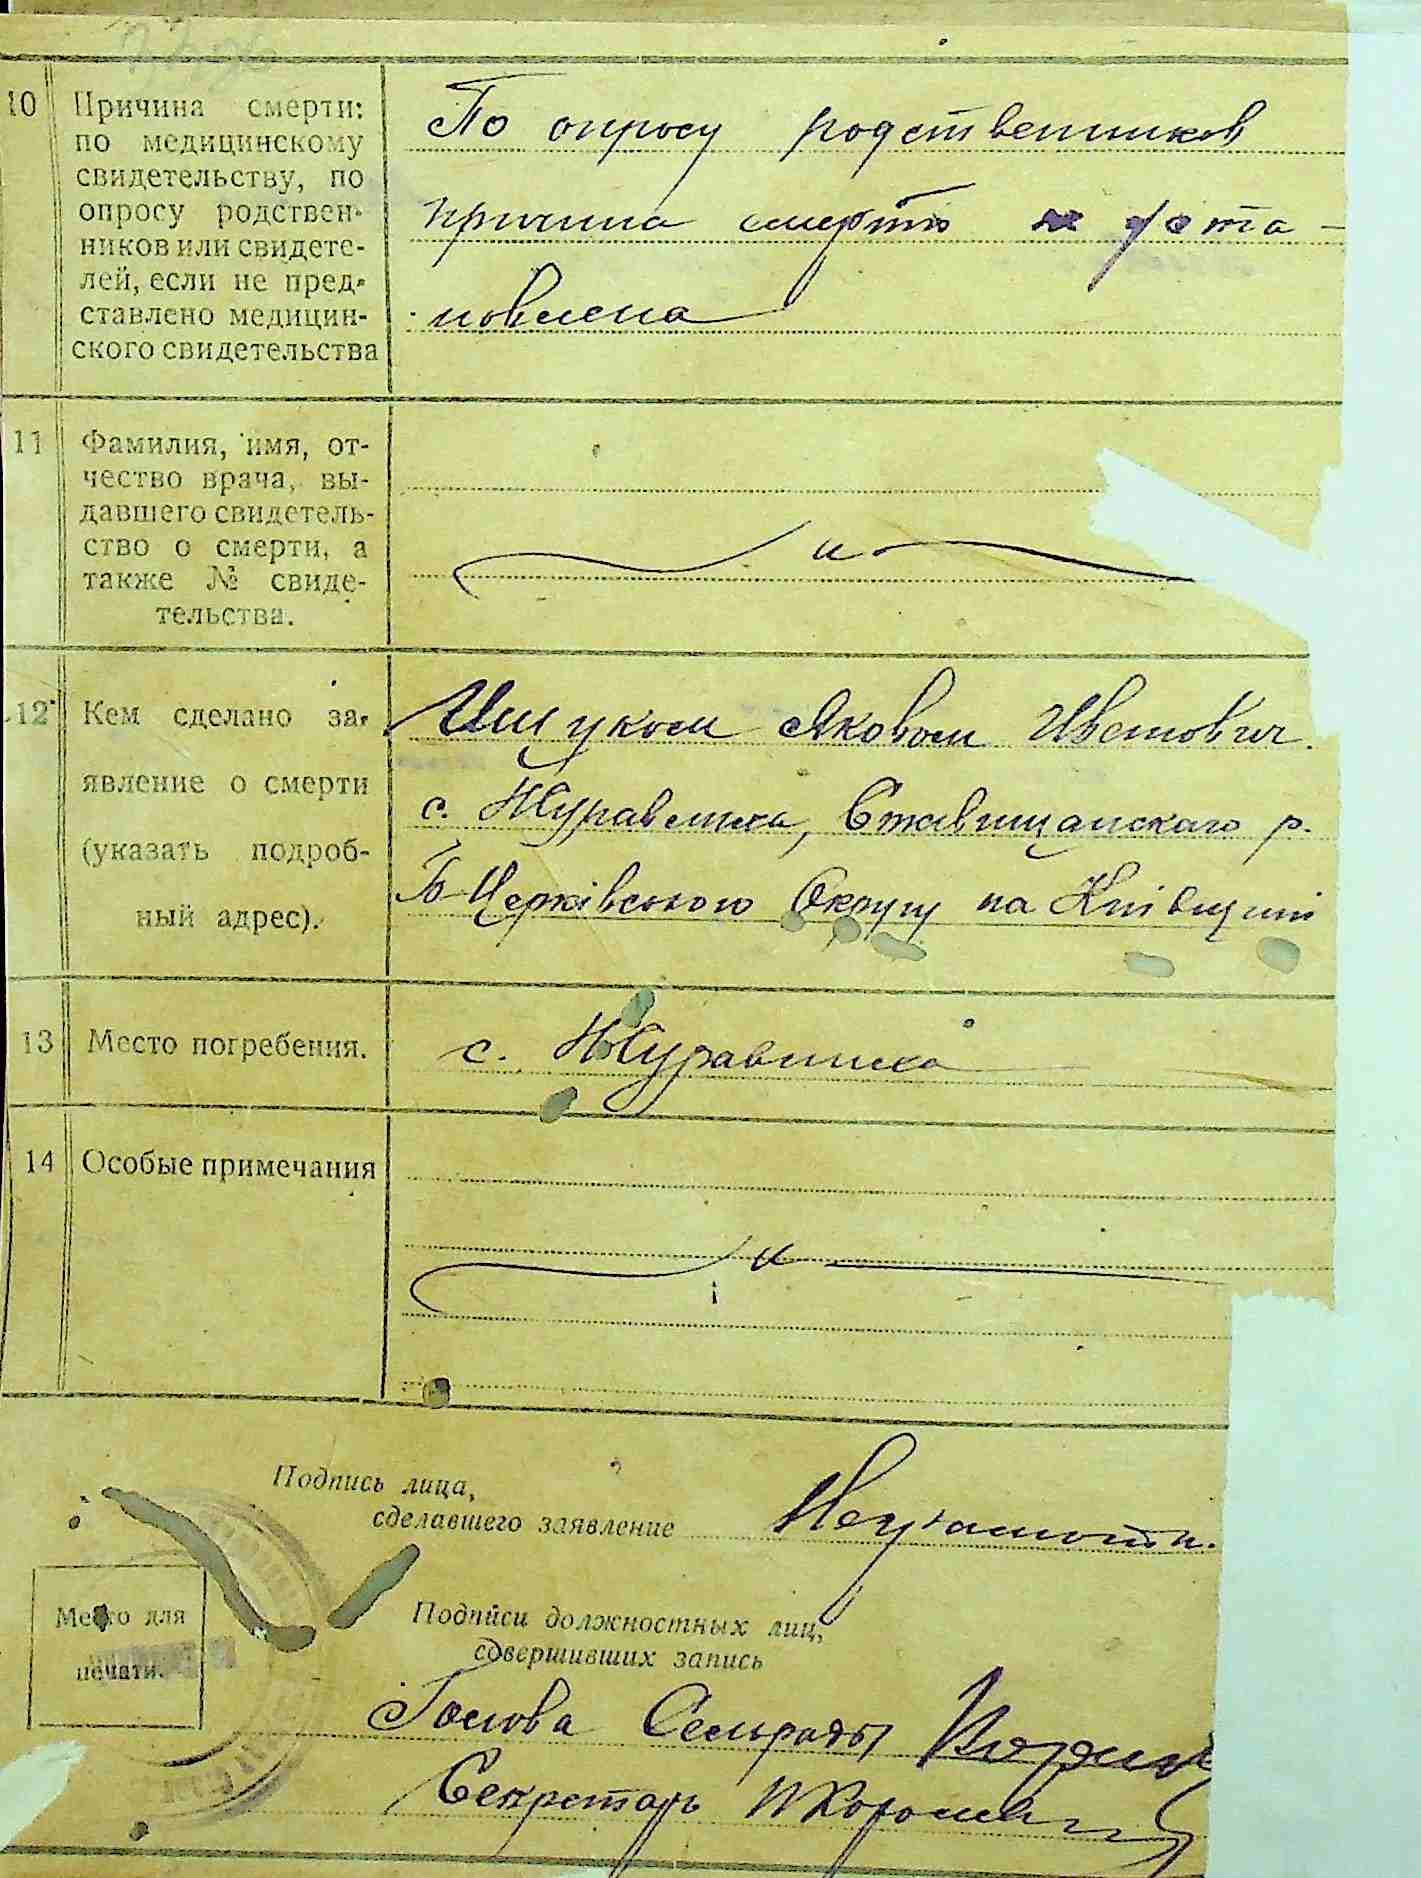 10 Причина смерти:
по медицинскому
свидетельству, по
опросу родствен-
ников или свидете-
лей, если не пред-
ставлено медицин-
ского свидетельства
По опросу родственников
причина смерти не уста-
новлена
11 Фамилия, имя, от-
чество врача, вы-
давшего свидетель-
ство о смерти, а
также № свиде-
тельства.
12 Кем сделано за-
явление о смерти
(указать подроб-
ный адрес).
Ищуком Яковом Иванович.
с. Журавлиха, Ставищанского р.
Б-Церківського Округу на Київщині
13 Место погребения.
с. Журавлиха
14 Особые примечания
Подпись лица,
сделавшего заявление Неграмотн.
Место для
печати.
Подписи должностных лиц,
совершивших запись
Голова Сельрады
Секретарь